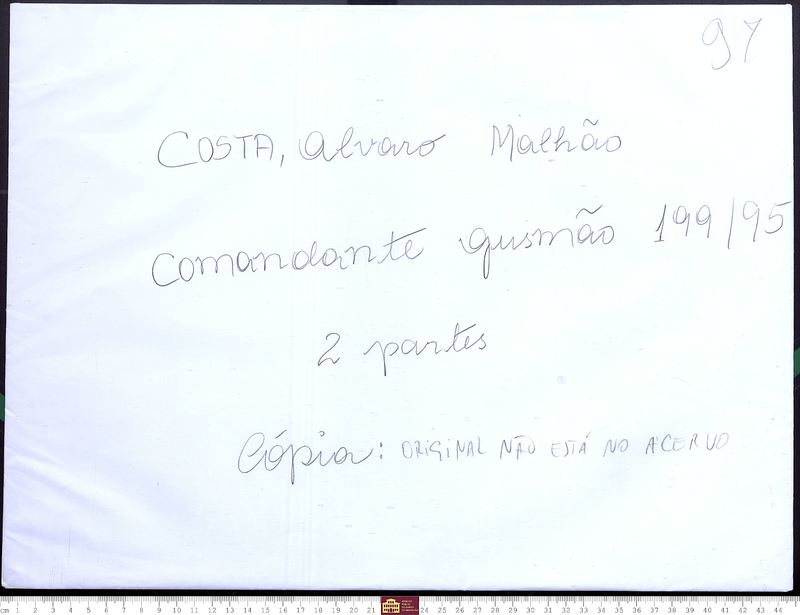 97
COSTA, Alvaro Malhão
Comandante Gusmão 199/95
2 partes
Cópia: ORIGINAL NÃO ESTÁ NO ACERVO
cm 1 2 3 4 5 6 7 8 9 10 11 12 13 14 15 16 17 18 19 20 21 24 25 26 27 28 29 30 31 32 33 34 35 36 37 38 39 40 41 42 43 44